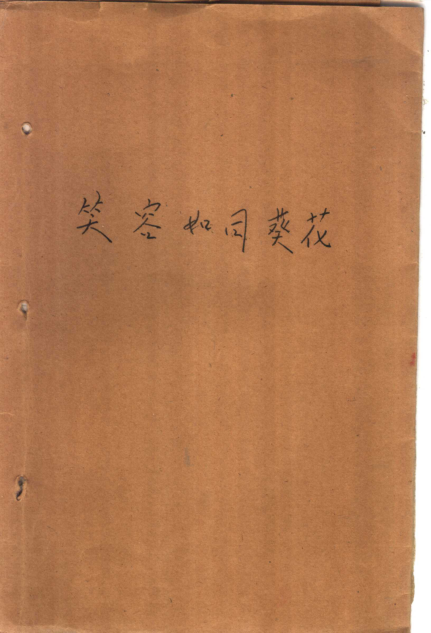 笑容如同葵花